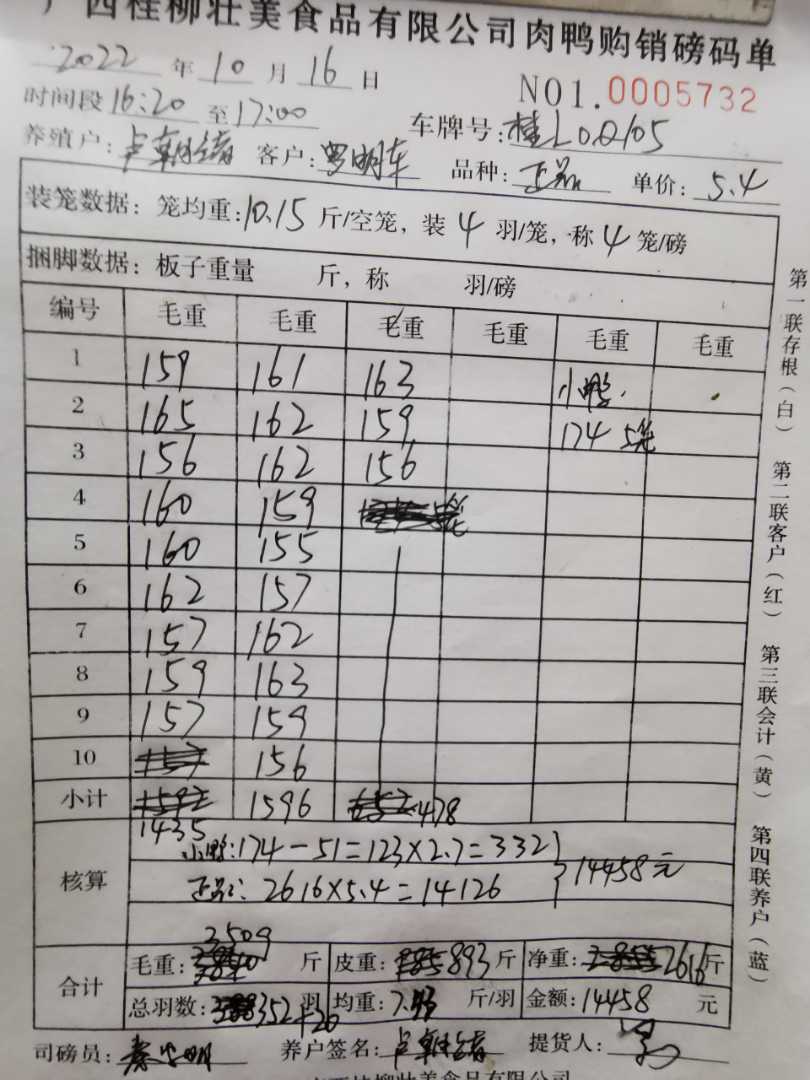 广西桂柳壮美食品有限公司肉鸭购销磅码单
2022 年 10 月 16 日 NO1.0005732
时间段 16:20 至 17:00 车牌号:桂L0Q105
养殖户: 客户:罗明车 品种:正品 单价:5.4
装笼数据:笼均重:10.15 斤/空笼,装 4 羽/笼,称 4 笼/磅
捆脚数据:板子重量 斤,称 羽/磅
编号 毛重 毛重 毛重 毛重 毛重 毛重
1 159 161 163 小鸭
2 165 162 159 174 5笼
3 156 162 156
4 160 159
5 160 155
6 162 157
7 157 162
8 159 163
9 157 159
10 156
小计 1596 478
1435
小鸭:174-51=123×2.7=332
核算 正品:2616×5.4=14126 14458元
3509
合计 毛重: 斤 皮重: 893 斤 净重: 2616 斤
总羽数: 352+20 羽 均重:7.43 斤/羽 金额:14458 元
司磅员: 养户签名: 提货人:
第一联存根(白) 第二联客户(红) 第三联会计(黄) 第四联养户(蓝)